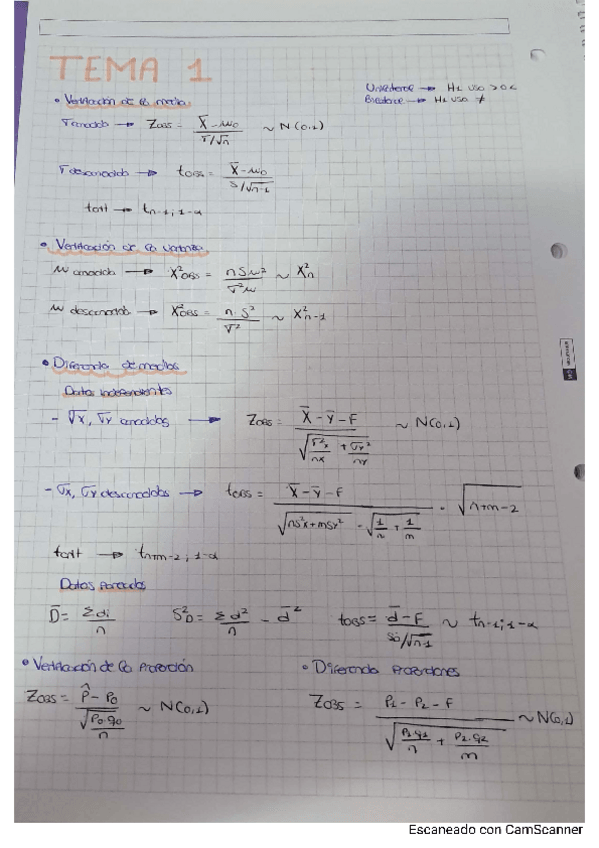 TEMA 1
Unilateral → H1 uso > o <
Bilateral → H1 uso ≠
• Verificación de la media
σ conocida → Zobs = (X̄ - μ0) / (σ/√n) ~ N(0,1)
σ desconocida → tobs = (X̄ - μ0) / (s/√n-1)
tcrit → tn-1; 1-α
• Verificación de la varianza
μ conocida → X²obs = nSμ² / σ²μ ~ X²n
μ desconocida → X²obs = n·S² / σ² ~ X²n-1
• Diferencia de medias
Datos independientes
- σx, σy conocidas → Zobs = (X̄ - Ȳ - F) / √(σ²x/nx + σy²/ny) ~ N(0,1)
- σx, σy desconocidas → tobs = (X̄ - Ȳ - F) / (√(nS²x + mSy²) · √(1/n + 1/m)) · √(n+m-2)
tcrit → tn+m-2; 1-α
Datos Pareados
D̄ = Σdi / n S²D = Σd² / n - d̄² tobs = (d̄ - F) / (SD/√n-1) ~ tn-1; 1-α
• Verificación de la Proporción • Diferencia Proporciones
Zobs = (P̂ - P0) / √(P0·q0 / n) ~ N(0,1) Zobs = (P1 - P2 - F) / √(P1·q1 / n + P2·q2 / m) ~ N(0,1)
Escaneado con CamScanner